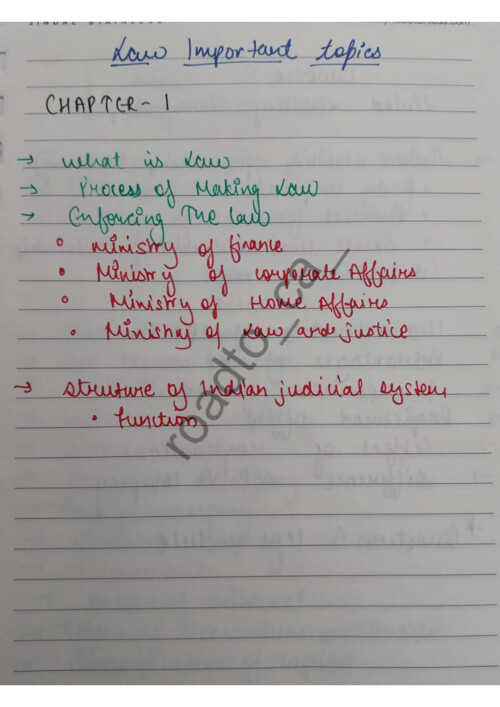 Law Important topics
CHAPTER - 1
→ what is Law
→ Process of Making Law
→ Enforcing The law
• Ministry of finance
• Ministry of corporate Affairs
• Ministry of Home Affairs
• Ministry of Law and justice
→ struture of Indian judicial system,
• function
roadto__ca_